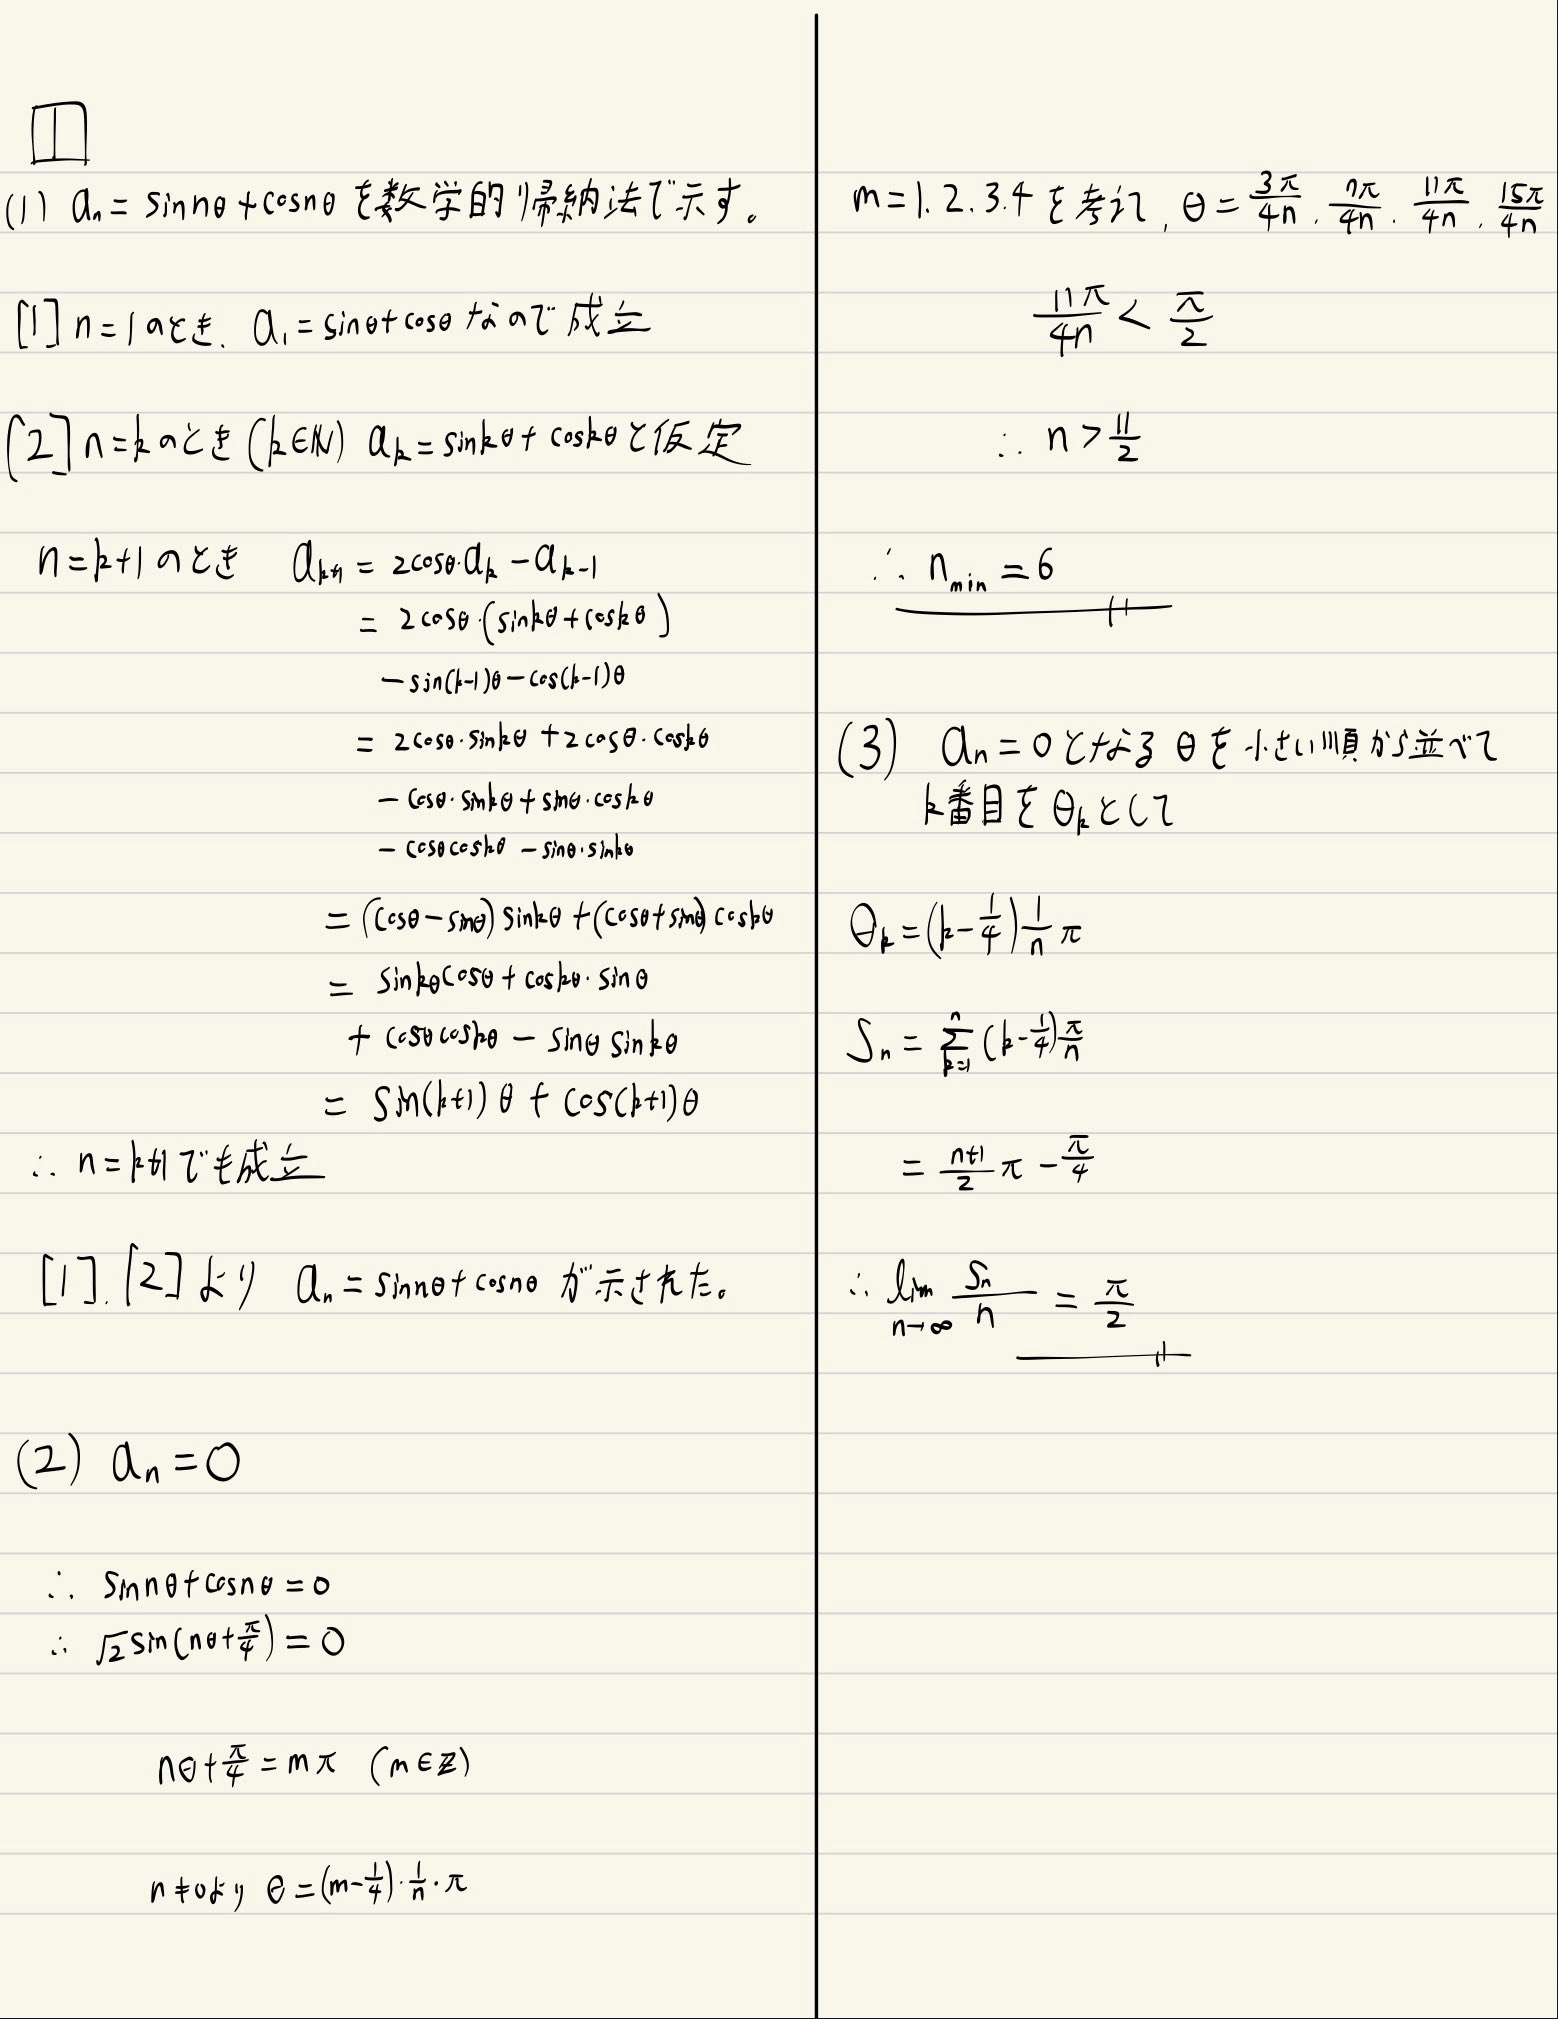 1
(1) aₙ = sin nθ + cos nθ を数学的帰納法で示す。
[1] n=1のとき、a₁ = sinθ + cosθ なので成立
[2] n=kのとき (k∈ℕ) aₖ = sin kθ + cos kθ と仮定
n=k+1のとき aₖ₊₁ = 2cosθ·aₖ − aₖ₋₁
= 2cosθ·(sin kθ + cos kθ)
− sin(k−1)θ − cos(k−1)θ
= 2cosθ·sin kθ + 2cosθ·cos kθ
− cosθ·sin kθ + sinθ·cos kθ
− cosθ cos kθ − sinθ·sin kθ
= (cosθ − sinθ) sin kθ + (cosθ + sinθ) cos kθ
= sin kθ cosθ + cos kθ·sinθ
+ cosθ cos kθ − sinθ sin kθ
= sin(k+1)θ + cos(k+1)θ
∴ n=k+1でも成立
[1].[2]より aₙ = sin nθ + cos nθ が示された。
(2) aₙ = 0
∴ sin nθ + cos nθ = 0
∴ √2 sin(nθ + π/4) = 0
nθ + π/4 = mπ (m∈ℤ)
n≠0より θ = (m − 1/4)·1/n·π
m=1.2.3.4を考えて, θ = 3π/4n, 7π/4n, 11π/4n, 15π/4n
11π/4n < π/2
∴ n > 11/2
∴ n_min = 6
(3) aₙ = 0となるθを小さい順から並べて
k番目をθₖとして
θₖ = (k − 1/4) 1/n π
Sₙ = Σ_{k=1}^{n} (k − 1/4) π/n
= (n+1)/2 π − π/4
∴ lim_{n→∞} Sₙ/n = π/2